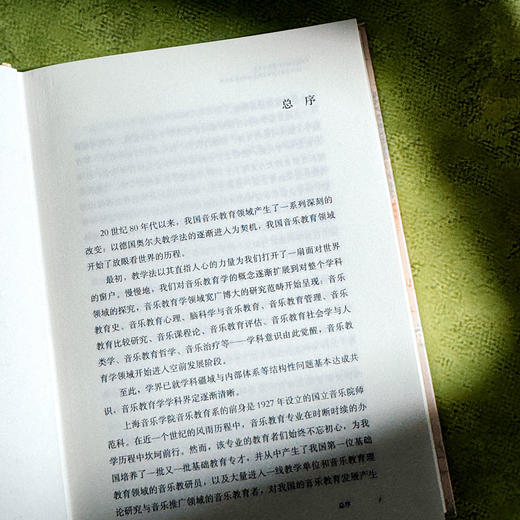 总 序
20世纪80年代以来，我国音乐教育领域产生了一系列深刻的
改变；以德国奥尔夫教学法的逐渐进入为契机，我国音乐教育领域
开始了放眼看世界的历程。
最初，教学法以其直指人心的力量为我们打开了一扇面对世界
的窗户。慢慢地，我们对音乐教育学的概念逐渐扩展到对整个学科
领域的探究，音乐教育学领域宽广博大的研究范畴开始呈现：音乐
教育史、音乐教育心理、脑科学与音乐教育、音乐教育管理、音乐
教育比较研究、音乐课程论、音乐教育评估、音乐教育社会学与人
类学、音乐教育哲学、音乐治疗等——学科意识由此觉醒，音乐教
育学领域开始进入空前发展阶段。
至此，学界已就学科疆域与内部体系等结构性问题基本达成共
识，音乐教育学学科界定逐渐清晰。
上海音乐学院音乐教育系的前身是1927年设立的国立音乐院师
范科。在近一个世纪的风雨历程中，音乐教育专业在时断时续的办
学历程中坎坷前行。然而，该专业的教育者们始终不忘初心，为我
国培养了一批又一批基础教育专才，并从中产生了我国第一位基础
教育领域的音乐教研员，以及大量进入一线教学单位和音乐教育理
论研究与音乐推广领域的音乐教育者，对我国的音乐教育发展产生
总序